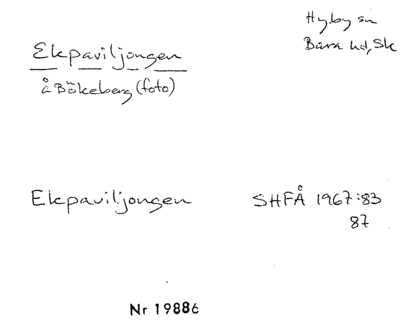 Hyby sn
Bara hd, Sk
Ekpaviljongen
å Bökeberg (foto)
Ekpaviljongen SHFÅ 1967:83
87
Nr 19886